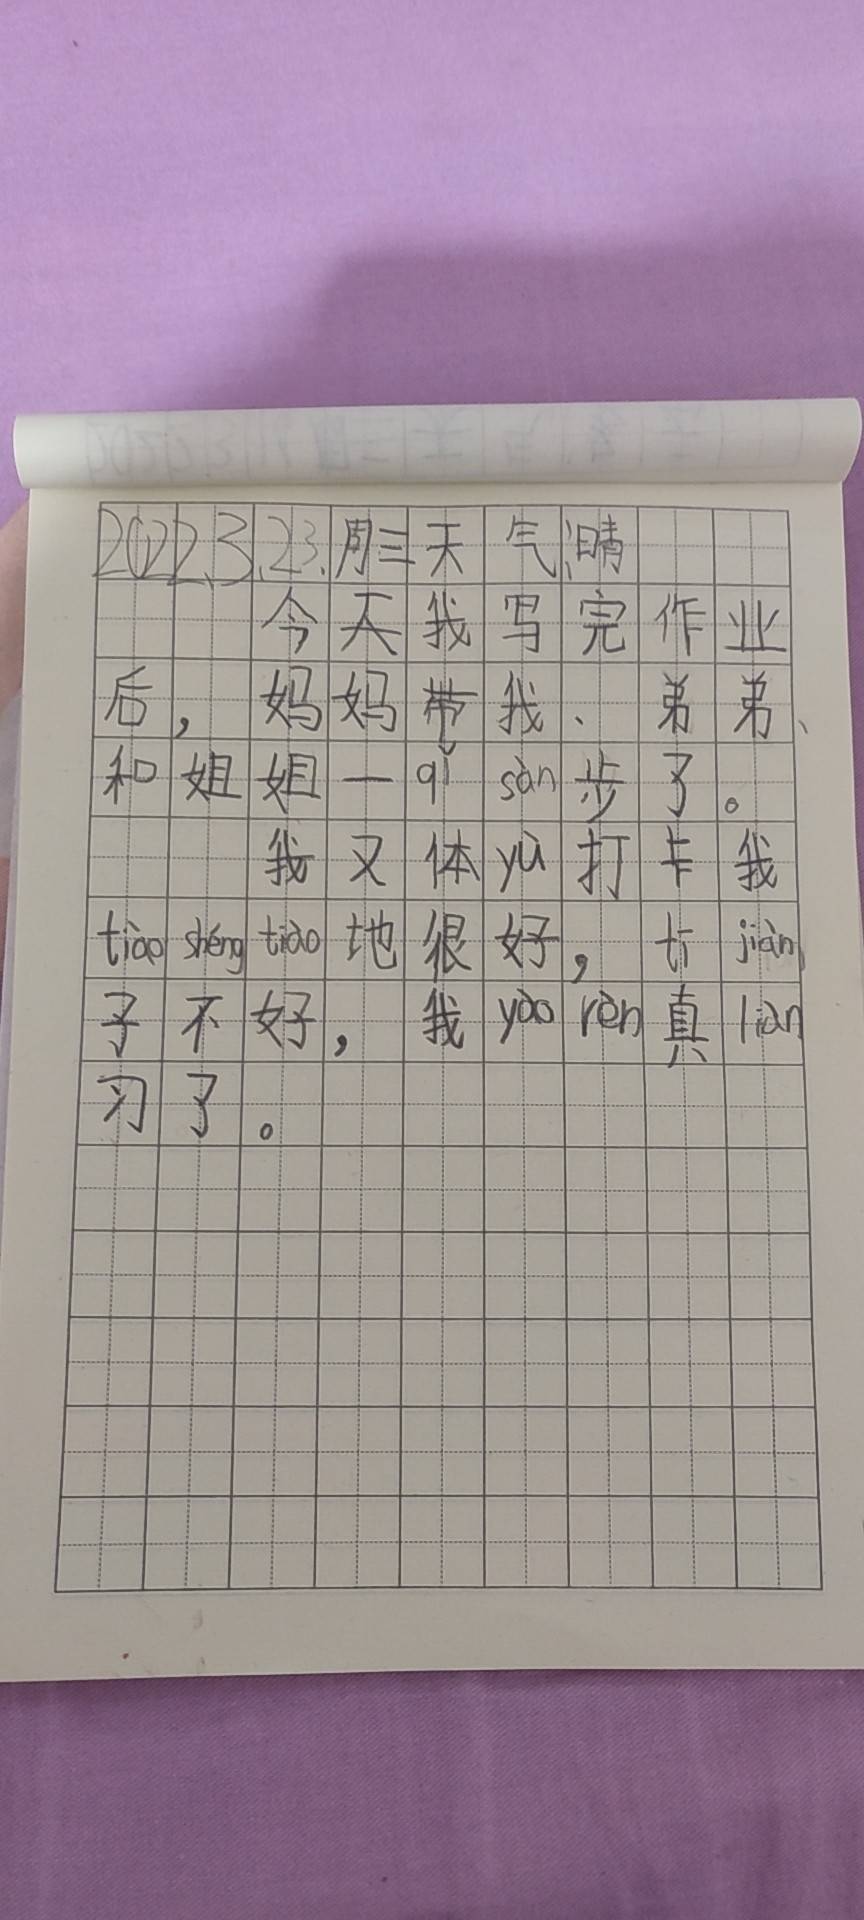 2022.3.23.周三天气:晴
今天我写完作业
后，妈妈带我、弟弟、
和姐姐一qǐ sàn步了。
我又体yù打卡我
tiào shéng tiào地很好，tī jiàn
子不好，我yào rèn真liàn
习了。